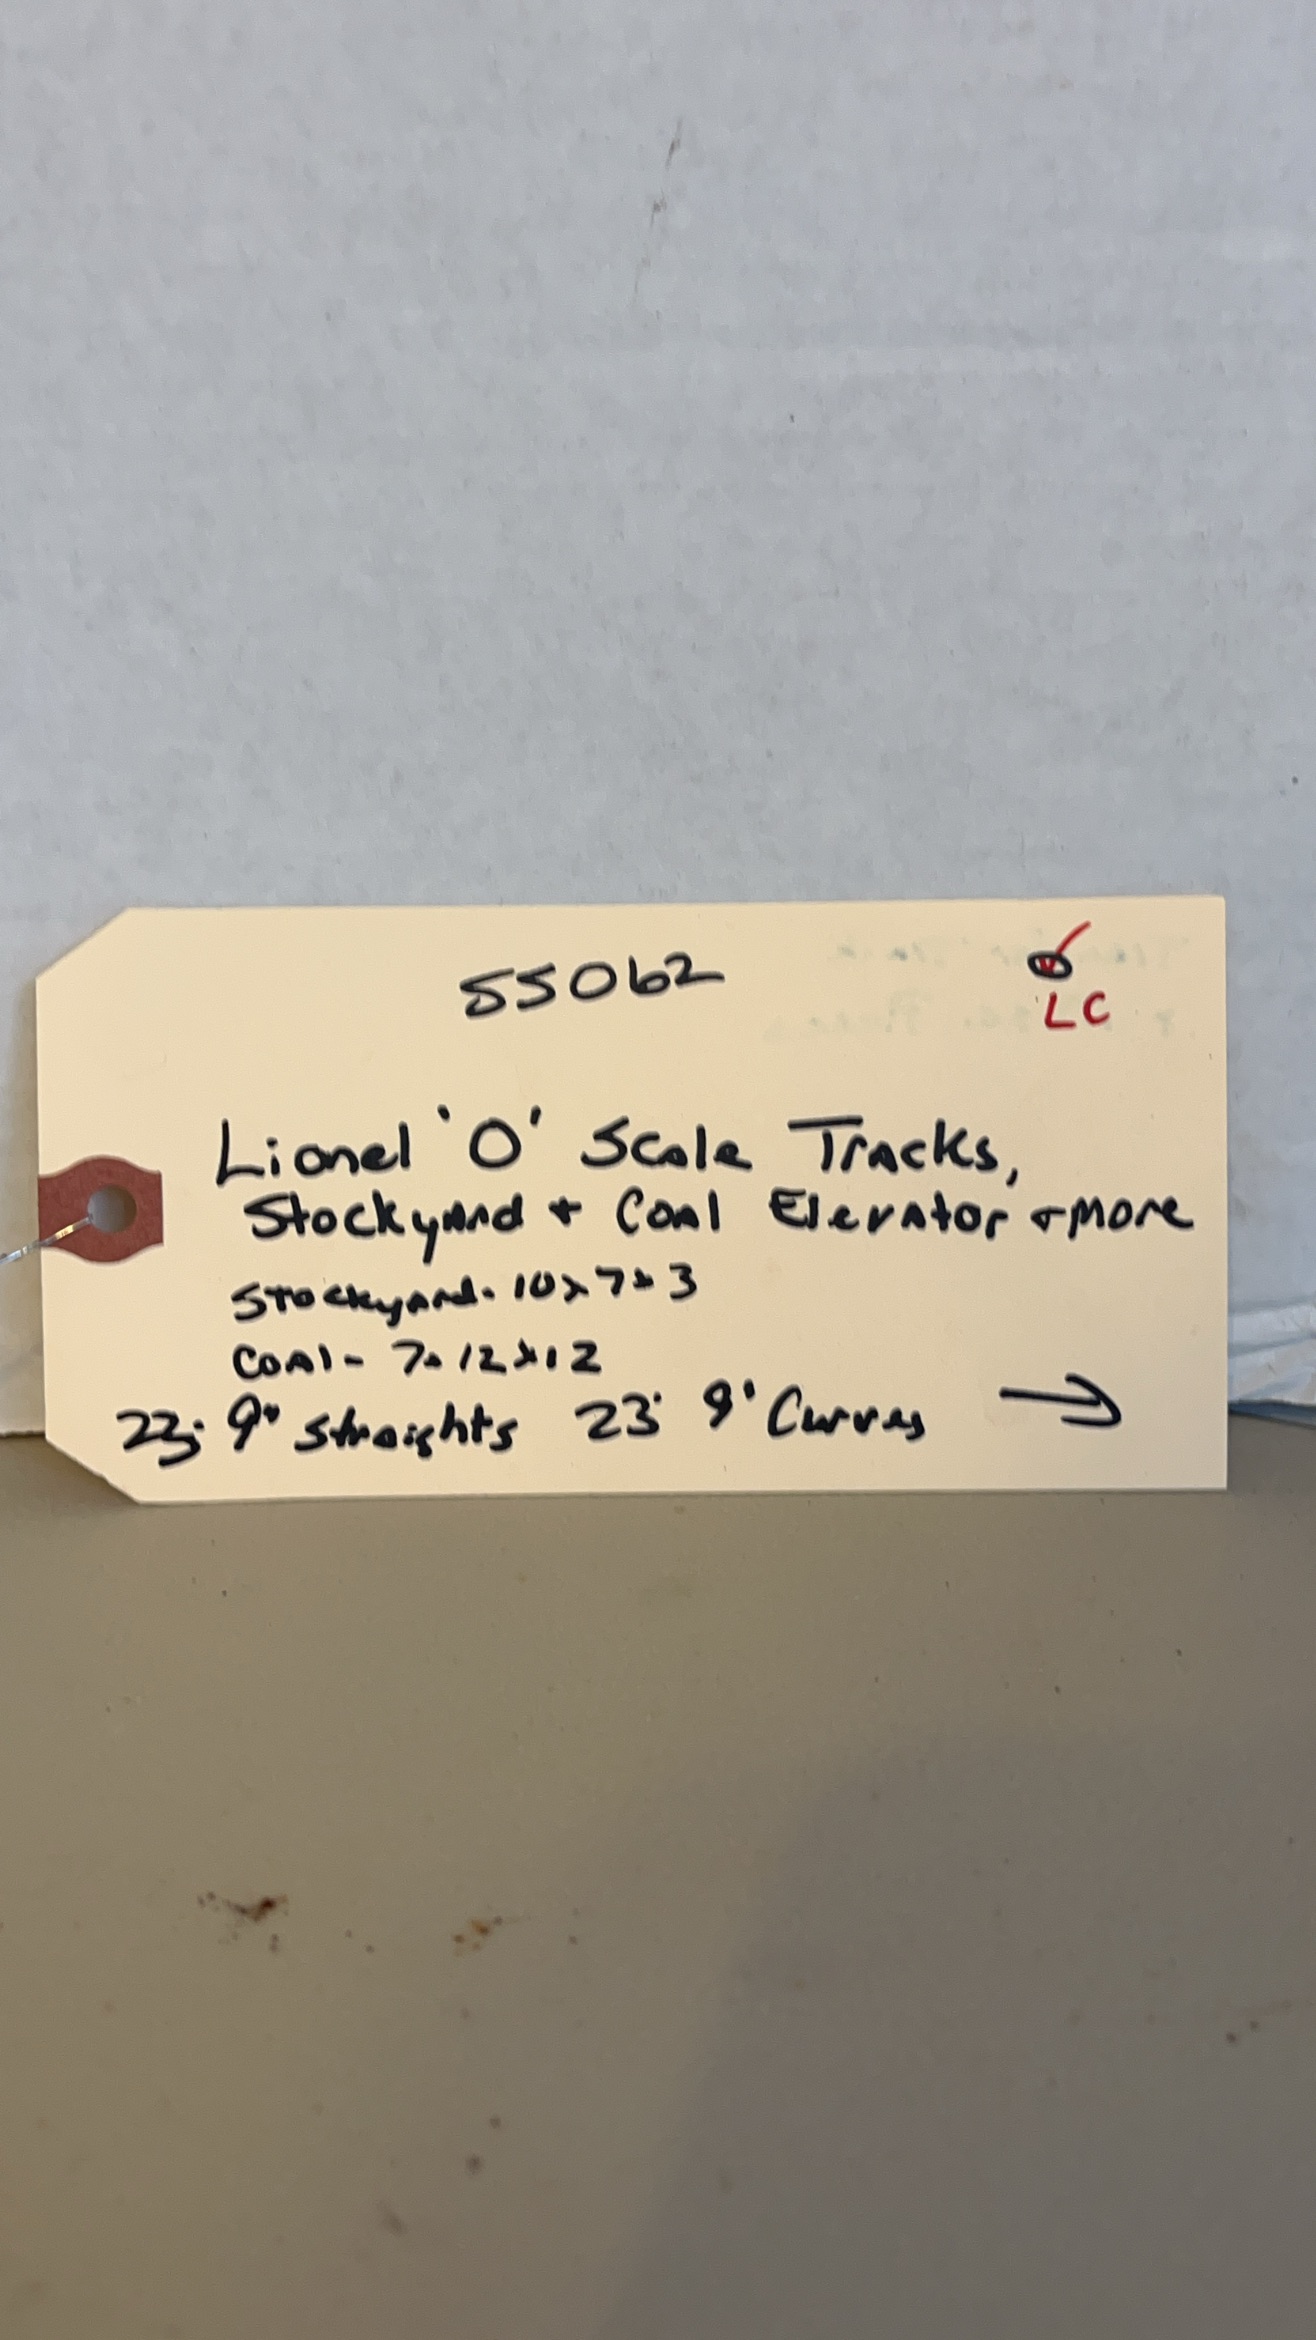 55062
LC
Lionel 'O' Scale Tracks,
Stockyard + Coal Elevator + more
Stockyard - 10 x 7 x 3
Coal - 7 x 12 x 12
9" Straights 23 9" Curves →